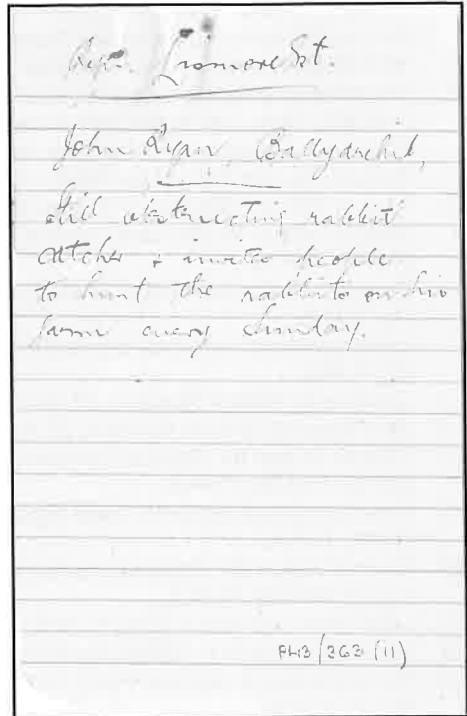 Lismore Est.
John Ryan, Ballyduff,
still obstructing rabbit
catcher & invites people
to hunt the rabbits on his
farm every Sunday.
PP13/363 (11)